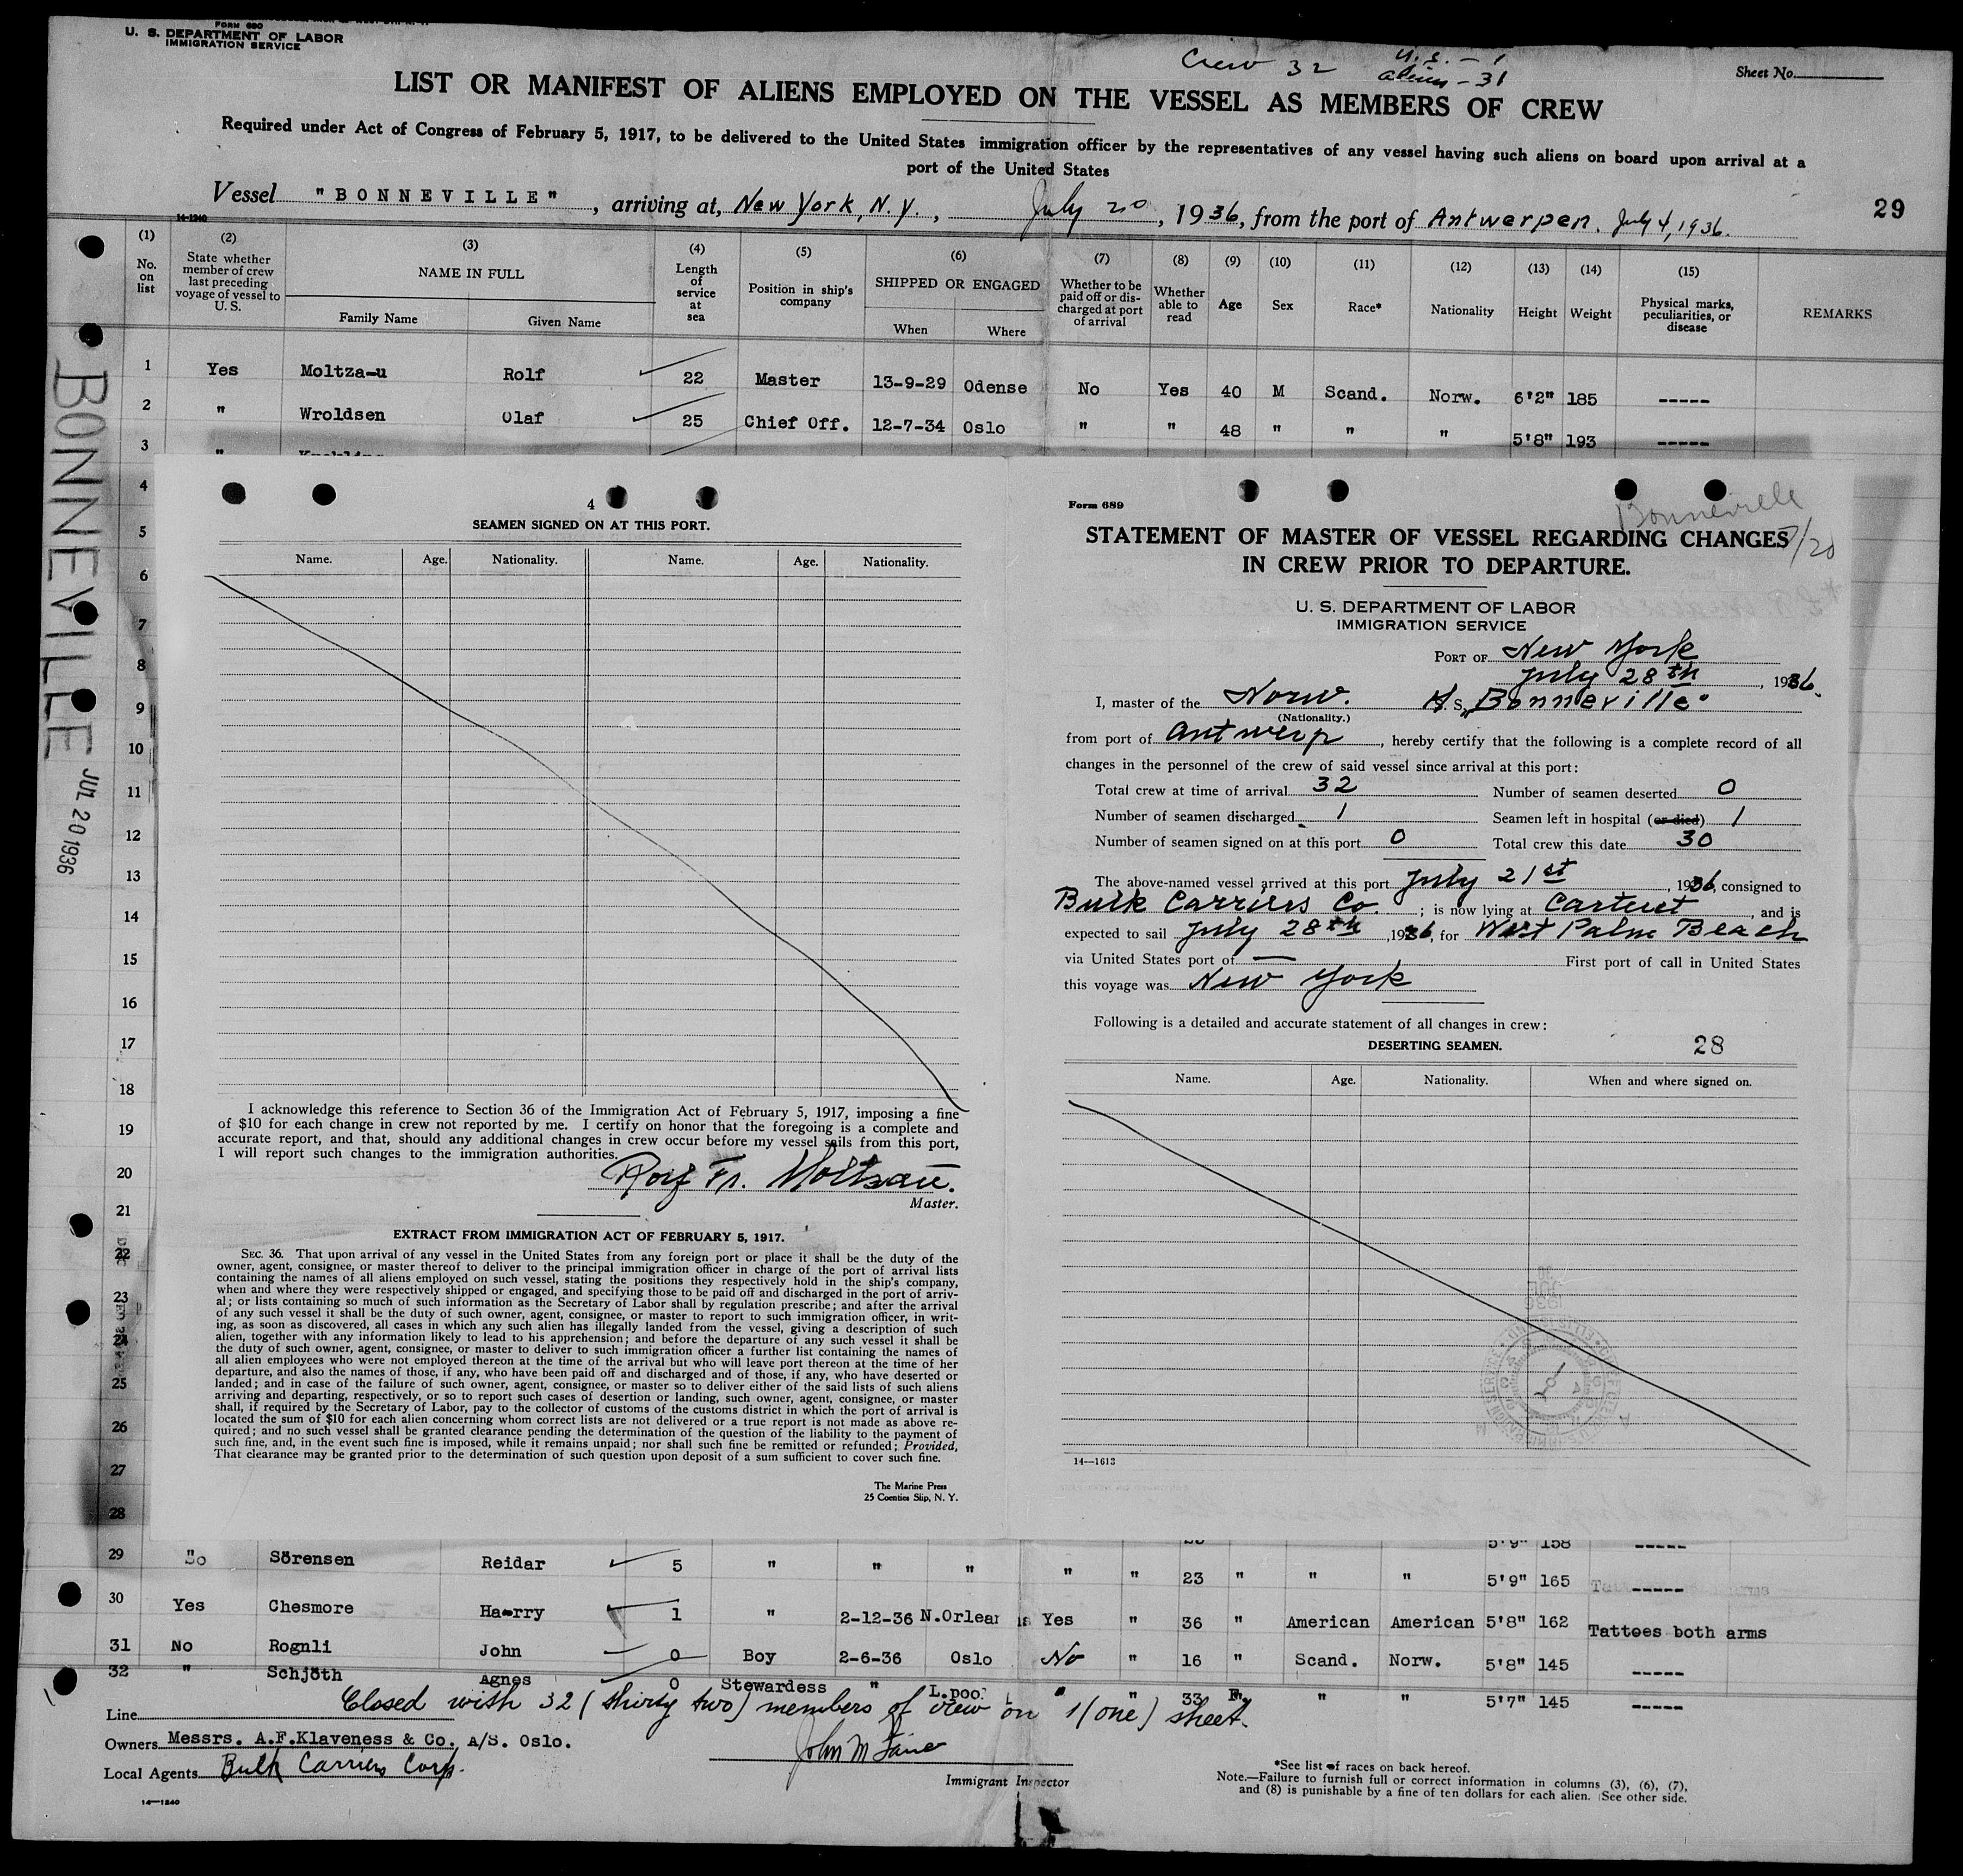 FORM 680
U. S. DEPARTMENT OF LABOR
IMMIGRATION SERVICE
Crew 32
U.S. - 1
aliens - 31
Sheet No.
LIST OR MANIFEST OF ALIENS EMPLOYED ON THE VESSEL AS MEMBERS OF CREW
Required under Act of Congress of February 5, 1917, to be delivered to the United States immigration officer by the representatives of any vessel having such aliens on board upon arrival at a
port of the United States
Vessel "BONNEVILLE", arriving at, New York, N.Y., July 20, 1936, from the port of Antwerpen. July 4, 1936.
29
14-1240
(1) No. on list
(2) State whether member of crew last preceding voyage of vessel to U. S.
(3) NAME IN FULL Family Name Given Name
(4) Length of service at sea
(5) Position in ship's company
(6) SHIPPED OR ENGAGED When Where
(7) Whether to be paid off or discharged at port of arrival
(8) Whether able to read
(9) Age
(10) Sex
(11) Race*
(12) Nationality
(13) Height
(14) Weight
(15) Physical marks, peculiarities, or disease
REMARKS
1 Yes Moltza-u Rolf 22 Master 13-9-29 Odense No Yes 40 M Scand. Norw. 6'2" 185 -----
2 " Wroldsen Olaf 25 Chief Off. 12-7-34 Oslo " " 48 " " " 5'8" 193 -----
3 "
4
5
6
7
8
9
10
11
12
13
14
15
16
17
18
19
20
21
22
23
24
25
26
27
28
BONNEVILLE
JUL 20 1936
4
SEAMEN SIGNED ON AT THIS PORT.
Name. Age. Nationality. Name. Age. Nationality.
I acknowledge this reference to Section 36 of the Immigration Act of February 5, 1917, imposing a fine
of $10 for each change in crew not reported by me. I certify on honor that the foregoing is a complete and
accurate report, and that, should any additional changes in crew occur before my vessel sails from this port,
I will report such changes to the immigration authorities.
Rolf Fr. Moltzau.
Master.
EXTRACT FROM IMMIGRATION ACT OF FEBRUARY 5, 1917.
SEC. 36. That upon arrival of any vessel in the United States from any foreign port or place it shall be the duty of the
owner, agent, consignee, or master thereof to deliver to the principal immigration officer in charge of the port of arrival lists
containing the names of all aliens employed on such vessel, stating the positions they respectively hold in the ship's company,
when and where they were respectively shipped or engaged, and specifying those to be paid off and discharged in the port of arriv-
al; or lists containing so much of such information as the Secretary of Labor shall by regulation prescribe; and after the arrival
of any such vessel it shall be the duty of such owner, agent, consignee, or master to report to such immigration officer, in writ-
ing, as soon as discovered, all cases in which any such alien has illegally landed from the vessel, giving a description of such
alien, together with any information likely to lead to his apprehension; and before the departure of any such vessel it shall be
the duty of such owner, agent, consignee, or master to deliver to such immigration officer a further list containing the names of
all alien employees who were not employed thereon at the time of the arrival but who will leave port thereon at the time of her
departure, and also the names of those, if any, who have been paid off and discharged and of those, if any, who have deserted or
landed; and in case of the failure of such owner, agent, consignee, or master so to deliver either of the said lists of such aliens
arriving and departing, respectively, or so to report such cases of desertion or landing, such owner, agent, consignee, or master
shall, if required by the Secretary of Labor, pay to the collector of customs of the customs district in which the port of arrival is
located the sum of $10 for each alien concerning whom correct lists are not delivered or a true report is not made as above re-
quired; and no such vessel shall be granted clearance pending the determination of the question of the liability to the payment of
such fine, and, in the event such fine is imposed, while it remains unpaid; nor shall such fine be remitted or refunded; Provided,
That clearance may be granted prior to the determination of such question upon deposit of a sum sufficient to cover such fine.
The Marine Press
25 Coenties Slip, N. Y.
Form 689
Bonneville
7/20
STATEMENT OF MASTER OF VESSEL REGARDING CHANGES
IN CREW PRIOR TO DEPARTURE.
U. S. DEPARTMENT OF LABOR
IMMIGRATION SERVICE
PORT OF New York
July 28th, 1936.
I, master of the Norw. S. "Bonneville"
(Nationality.)
from port of Antwerp, hereby certify that the following is a complete record of all
changes in the personnel of the crew of said vessel since arrival at this port:
Total crew at time of arrival 32 Number of seamen deserted 0
Number of seamen discharged 1 Seamen left in hospital (or died) 1
Number of seamen signed on at this port 0 Total crew this date 30
The above-named vessel arrived at this port July 21st, 1936, consigned to
Bulk Carriers Co.; is now lying at Carteret, and is
expected to sail July 28th, 1936, for West Palm Beach
via United States port of — First port of call in United States
this voyage was New York
Following is a detailed and accurate statement of all changes in crew:
DESERTING SEAMEN.
28
Name. Age. Nationality. When and where signed on.
14—1613
5'9" 158 -----
29 Sörensen Reidar 5 " " " " " 23 " " " 5'9" 165 -----
30 Yes Chesmore Harry 1 " 2-12-36 N.Orleans Yes " 36 " American American 5'8" 162 Tattoes both arms
31 No Rognli John 0 Boy 2-6-36 Oslo No " 16 " Scand. Norw. 5'8" 145 -----
32 " Schjöth Agnes 0 Stewardess " L.pool " " 33 F. " " 5'7" 145 -----
Closed with 32 (thirty two) members of crew on 1 (one) sheet.
Line
Owners Messrs. A.F.Klaveness & Co. A/S. Oslo.
Local Agents Bulk Carriers Corp.
Immigrant Inspector
14—1240
*See list of races on back hereof.
Note.—Failure to furnish full or correct information in columns (3), (6), (7),
and (8) is punishable by a fine of ten dollars for each alien. See other side.